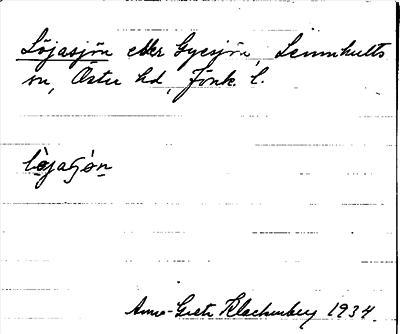 Löjasjön eller Gyesjön, Lemnhults
sn, Östra hd, Jönk. l.
löjaSjön
Anna-Greta Blackenberg 1934.